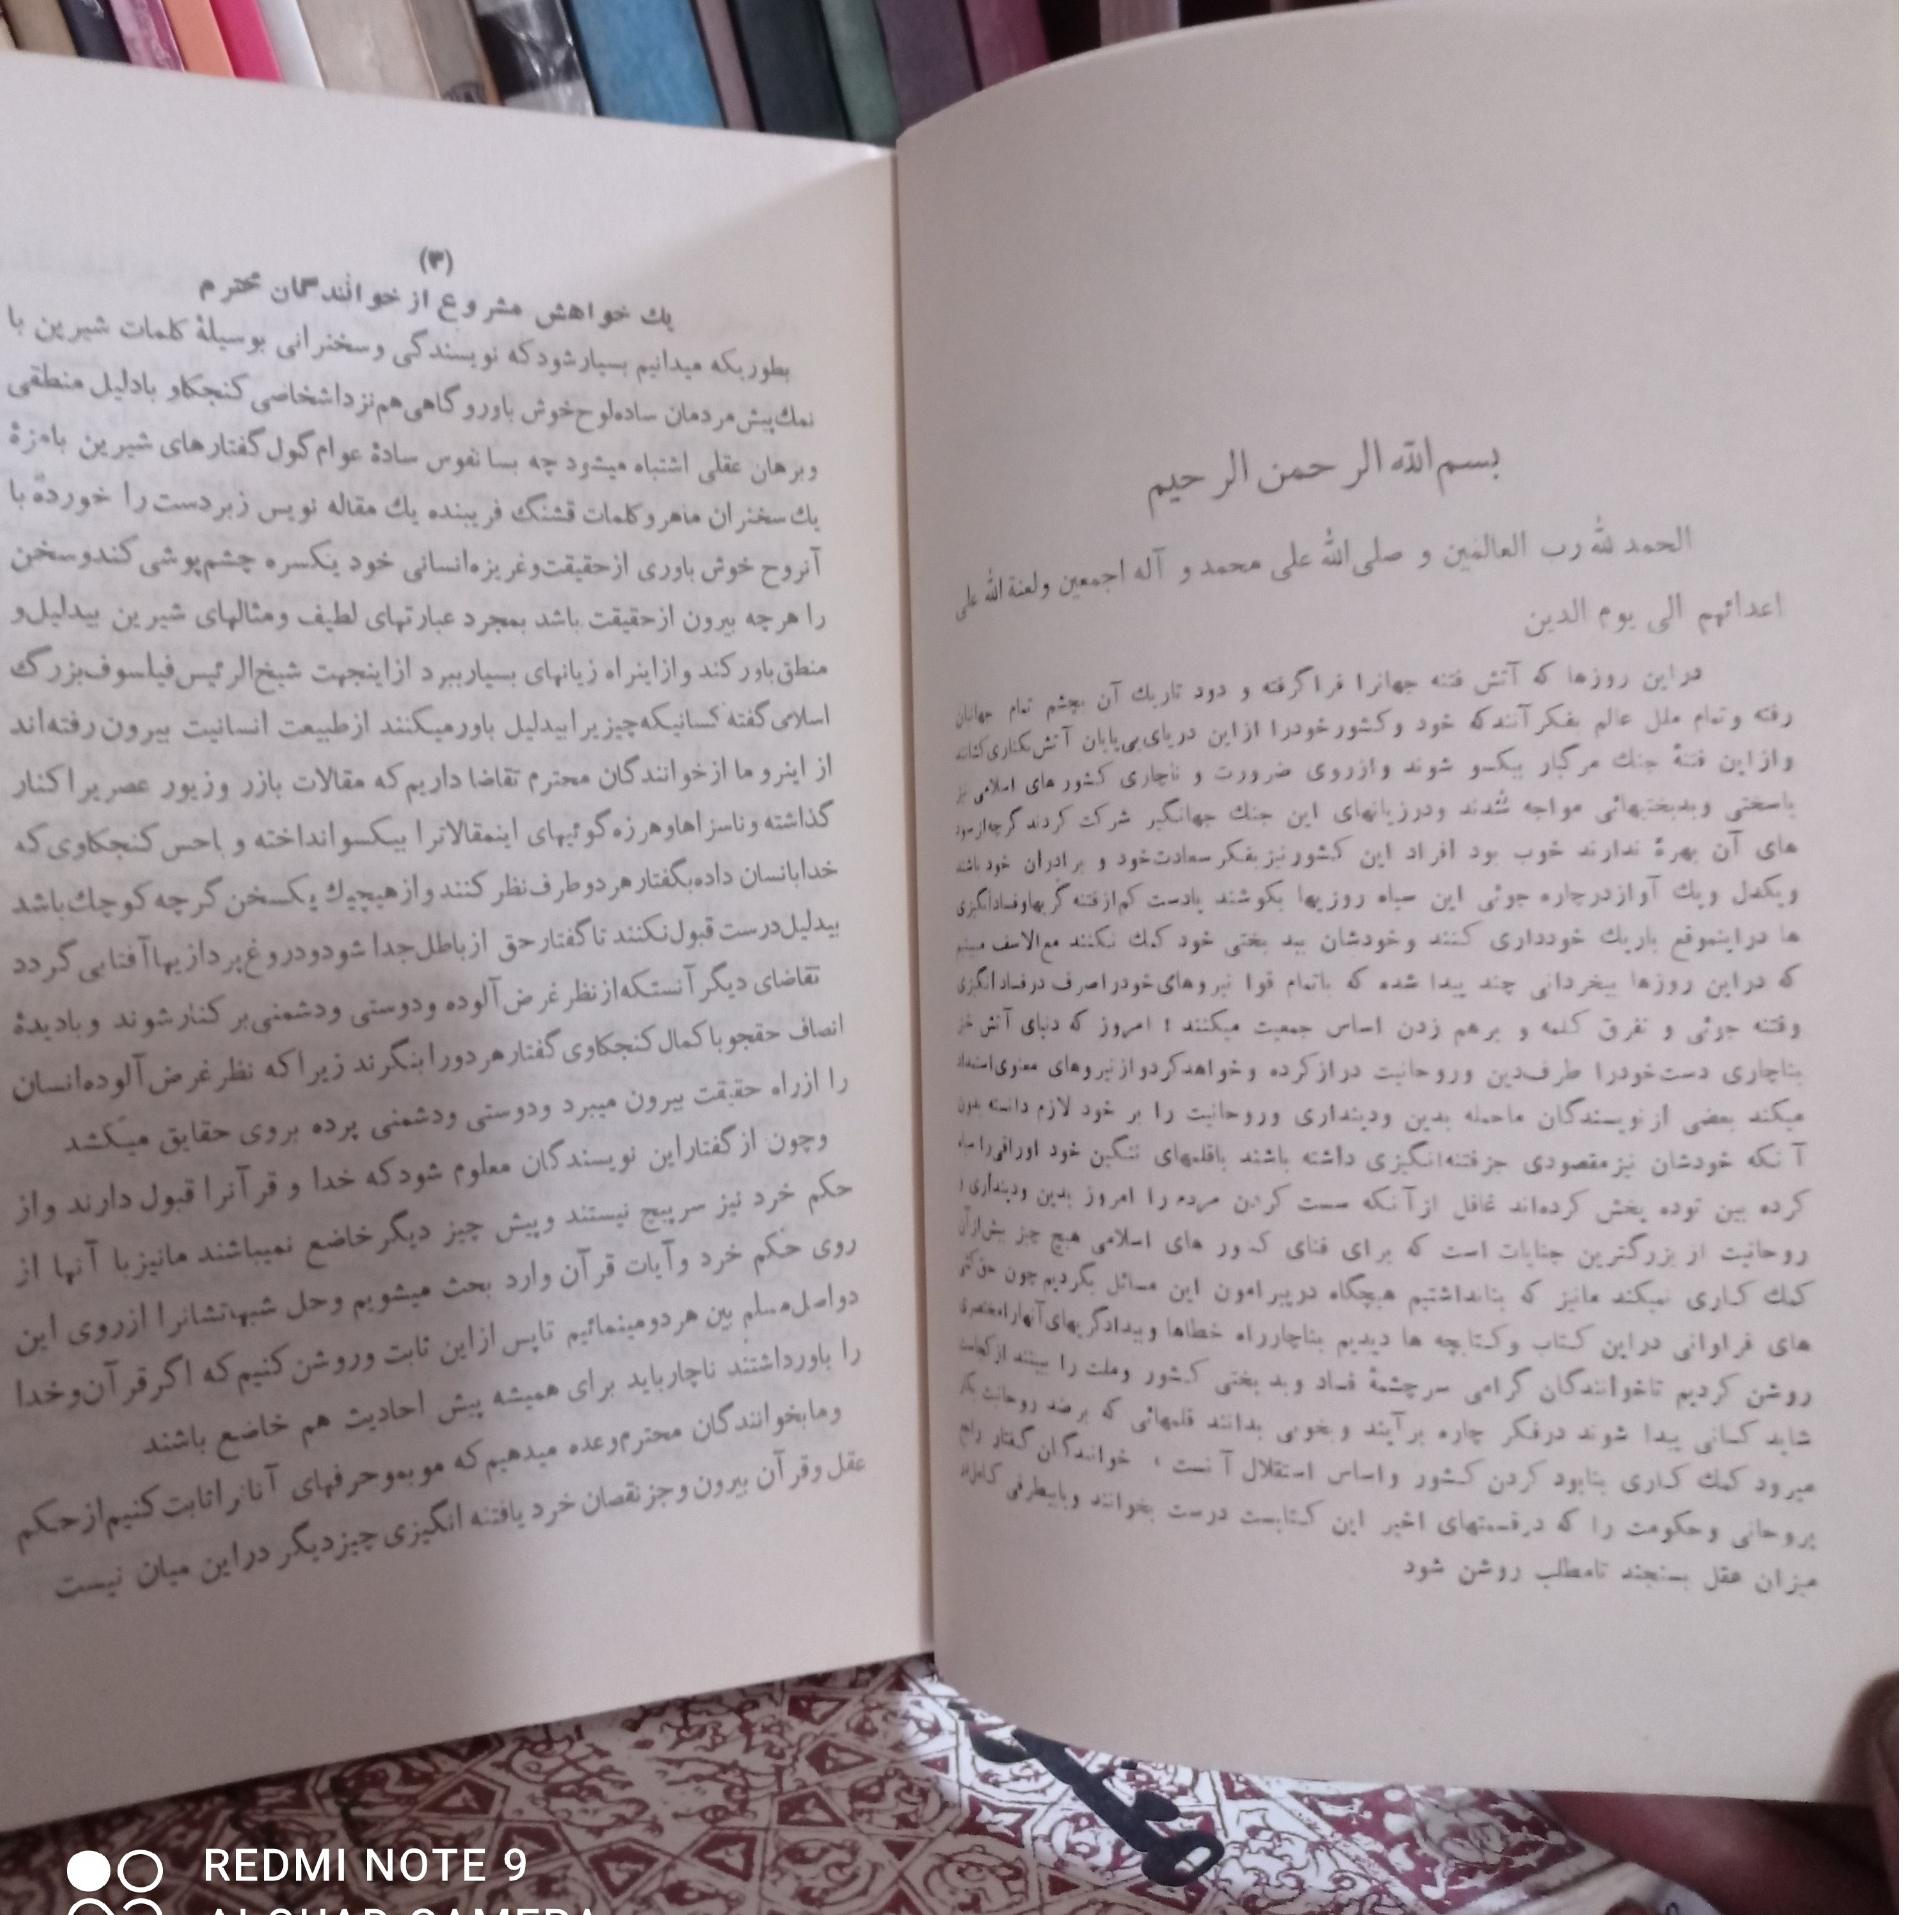 بسم‌الله الرحمن الرحیم
الحمد لله رب العالمین و صلی‌الله علی محمد و آله اجمعین ولعنة‌الله علی
اعدائهم الی یوم الدین
دراین روزها که آتش فتنه جهانرا فراگرفته و دود تاریك آن بچشم تمام جهانیان
رفته وتمام ملل عالم بفکر آنندکه خود وکشورخودرا ازاین دریای‌بی‌پایان آتش‌بکناری‌کشانند
وازاین فتنهٔ جنك مرگبار بیکسو شوند وازروی ضرورت و ناچاری کشور های اسلامی نیز
باسختی وبدبختیهائی مواجه شدند ودرزیانهای این جنك جهانگیر شرکت کردند گرچه‌ازسود
های آن بهرهٔ ندارند خوب بود افراد این کشورنیزبفکر سعادت‌خود و برادران خود باشند
ویکدل ویك آوازدرچاره جوئی این سیاه روزیها بکوشند یادست کم‌ازفتنه گریهاوفسادانگیزی
ها دراینموقع باریك خودداری کنند وخودشان ببد بختی خود کمك نکنند مع‌الاسف میبینیم
که دراین روزها بیخردانی چند پیدا شده که باتمام قوا نیروهای‌خودراصرف درفسادانگیزی
وفتنه جوئی و تفرق کلمه و برهم زدن اساس جمعیت میکنند ! امروز که دنیای آتش خیز
بناچاری دست‌خودرا طرف‌دین وروحانیت درازکرده وخواهدکردوازنیروهای معنوی‌استمداد
میکند بعضی ازنویسندگان ماحمله بدین ودینداری وروحانیت را بر خود لازم دانسته بدون
آنکه خودشان نیزمقصودی جزفتنه‌انگیزی داشته باشند باقلمهای ننگین خود اوراقی‌را سیاه
کرده بین توده پخش کرده‌اند غافل ازآنکه سست کردن مردم را امروز بدین ودینداری و
روحانیت از بزرگترین جنایات است که برای فنای کشور های اسلامی هیچ چیز بیش‌ازآن
کمك کاری نمیکند مانیز که بنانداشتیم هیچگاه درپیرامون این مسائل بگردیم چون حق‌کشی
های فراوانی دراین کتاب وکتابچه ها دیدیم بناچارراه خطاها وبیدادگریهای‌آنهارامختصری
روشن کردیم تاخوانندگان گرامی سرچشمهٔ فساد وبد بختی کشور وملت را ببینند ازکجاست
شاید کسانی پیدا شوند درفکر چاره برآیند وبخوبی بدانند قلمهائی که برضد روحانیت بکار
میرود کمك کاری بنابود کردن کشور واساس استقلال آنست ، خوانندگان گفتار راجع
بروحانی وحکومت را که درقسمتهای اخیر این کتابست درست بخوانند وبابیطرفی کامل‌در
میزان عقل بسنجند تامطلب روشن شود
(۳)
یك خواهش مشروع از خوانندگان محترم
بطوریکه میدانیم بسیارشودکه نویسندگی وسخنرانی بوسیلهٔ کلمات شیرین با
نمك‌پیش‌مردمان ساده‌لوح‌خوش باورو گاهی‌هم‌نزداشخاصی کنجکاو بادلیل منطقی
وبرهان عقلی اشتباه میشود چه بسا نفوس سادهٔ عوام‌گول‌گفتارهای شیرین بامزهٔ
یك‌سخنران ماهروکلمات قشنگ فریبنده یك مقاله نویس زبردست‌را خورده با
آنروح خوش باوری ازحقیقت‌وغریزه‌انسانی خود یکسره چشم‌پوشی کندوسخن
را هرچه بیرون ازحقیقت باشد بمجرد عبارتهای لطیف ومثالهای شیرین بیدلیل‌و
منطق‌باورکند وازاینراه زیانهای بسیارببرد ازاینجهت شیخ‌الرئیس‌فیلسوف‌بزرگ
اسلامی‌گفته کسانیکه‌چیزیرابیدلیل باورمیکنند ازطبیعت انسانیت بیرون رفته‌اند
از اینرو ما ازخوانندگان محترم تقاضا داریم‌که مقالات بازر وزیور عصریراکنار
گذاشته وناسزاهاوهرزه‌گوئیهای اینمقالاترا بیکسوانداخته و باحس کنجکاوی که
خدابانسان داده‌بگفتارهردوطرف‌نظر کنند وازهیچیك یکسخن گرچه کوچك‌باشد
بیدلیل‌درست قبول‌نکنند تاگفتارحق ازباطل‌جدا شودودروغ‌پردازیهاآفتابی‌گردد
تقاضای دیگر آنستکه‌ازنظرغرض‌آلوده ودوستی ودشمنی‌برکنارشوند وبادیدهٔ
انصاف حقجوباکمال‌کنجکاوی گفتارهردورابنگرند زیراکه نظرغرض‌آلوده‌انسان
را ازراه حقیقت بیرون میبرد ودوستی ودشمنی پرده بروی حقایق میکشد
وچون ازگفتاراین نویسندگان معلوم شودکه خدا و قرآنرا قبول دارند واز
حکم خرد نیز سرپیچ نیستند وپیش چیز دیگرخاضع نمیباشند مانیزبا آنها از
روی حکم خرد وآیات قرآن وارد بحث میشویم وحل شبهاتشانرا ازروی این
دواصل‌مسلم بین هردومینمائیم تاپس ازاین ثابت وروشن‌کنیم‌که اگرقرآن‌وخدا
را باورداشتند ناچارباید برای همیشه پیش احادیث هم خاضع باشند
ومابخوانندگان محترم‌وعده میدهیم‌که موبموحرفهای آنانراثابت‌کنیم‌ازحکم
عقل وقرآن بیرون وجزنقصان خرد یافتنه انگیزی چیزدیگر دراین میان نیست
REDMI NOTE 9